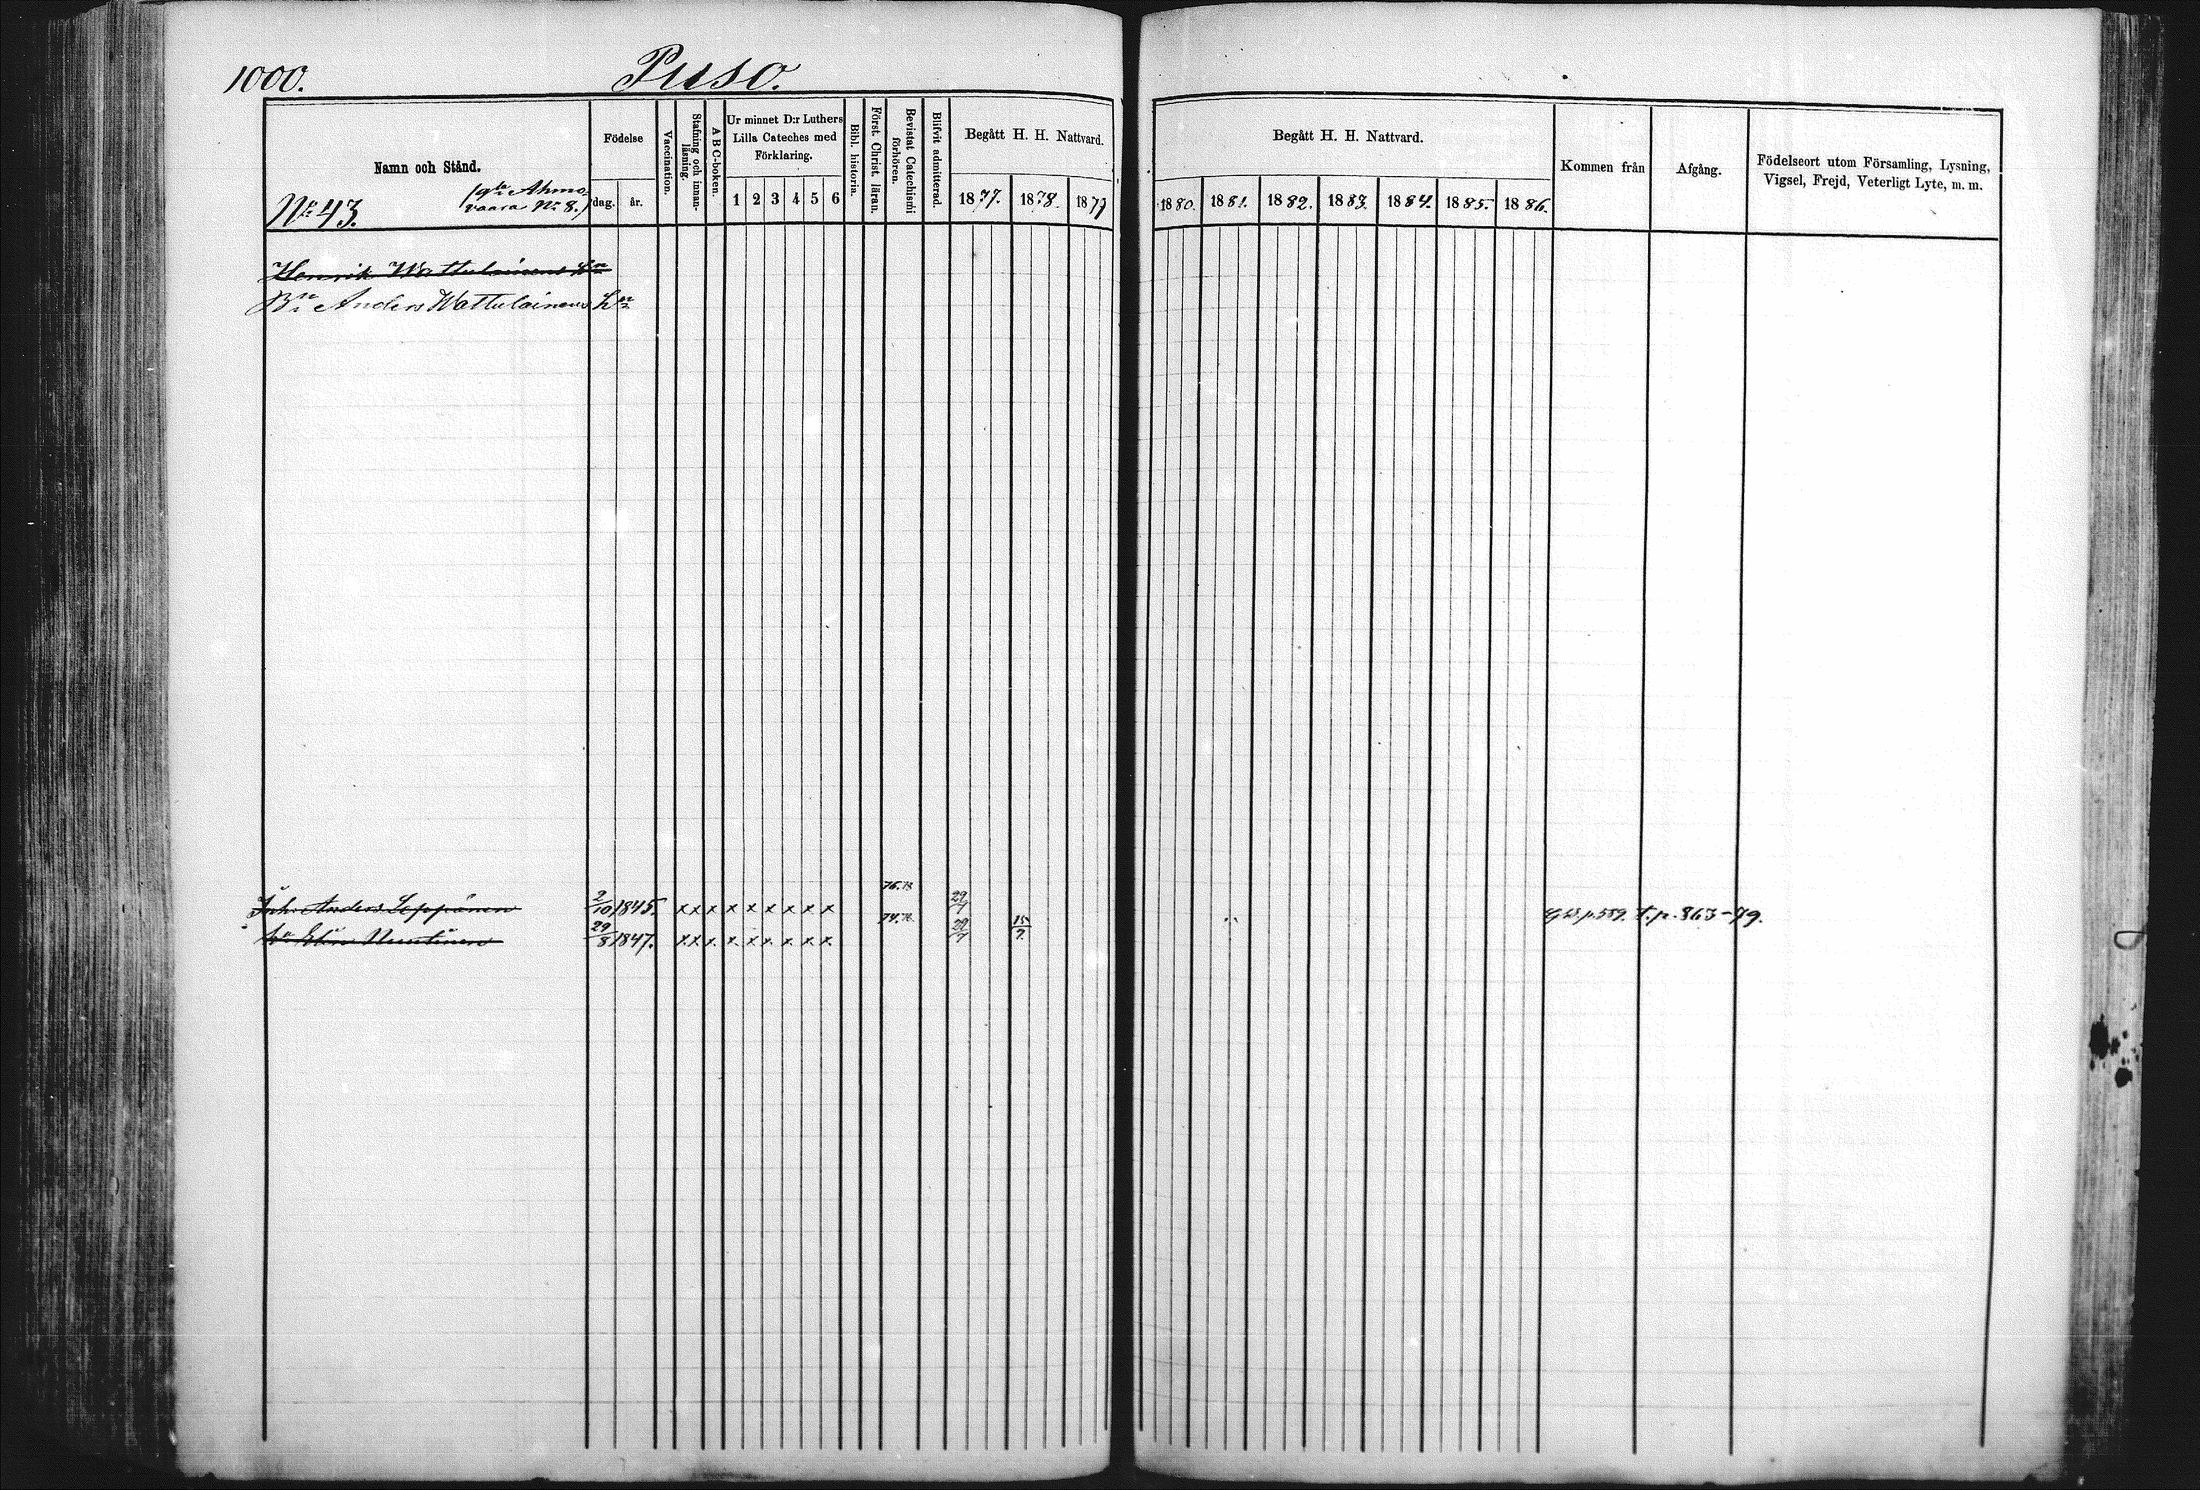 1000.
Puso.
Namn och Stånd.
Födelse
dag.
år.
Vaccination.
Stafning och innanläsning.
A B C-boken.
Ur minnet D:r Luthers Lilla Cateches med Förklaring.
1 2 3 4 5 6
Bibl. historia.
Först. Christ. läran.
Bevistat Catechismi förhören.
Blifvit admitterad.
Begått H. H. Nattvard.
1877. 1878. 1879
Begått H. H. Nattvard.
1880. 1881. 1882. 1883. 1884. 1885. 1886.
Kommen från
Afgång.
Födelseort utom Församling, Lysning, Vigsel, Frejd, Veterligt Lyte, m. m.
No 43.
(gla Ahmovaara No 8.)
Henrik Wattulainens
Anders Wattulainens
Inh. Anders Leppänen 2/10 1845. x x x x x x x x x 76.78 29/7 p. 589. t. p. 863-79.
Nuutinen 29/8 1847. x x x x x x x x x 29/7 15/7